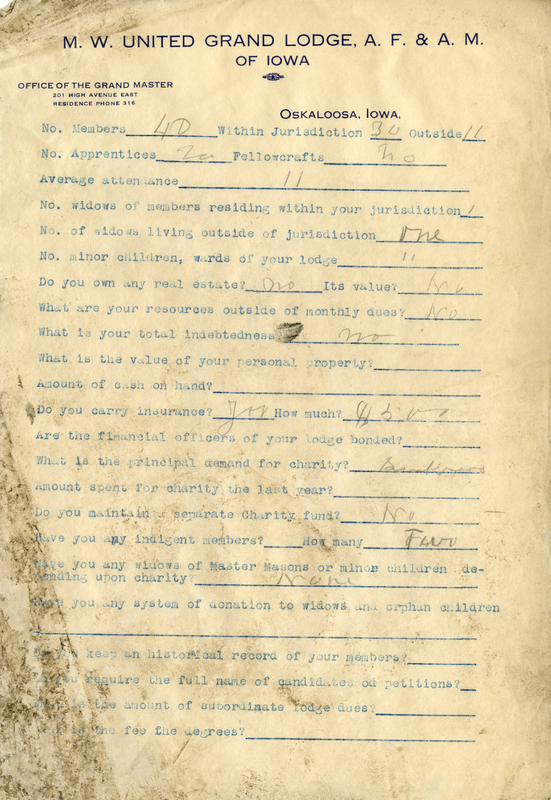 M. W. UNITED GRAND LODGE, A. F. & A. M.
OF IOWA
OFFICE OF THE GRAND MASTER
201 HIGH AVENUE EAST
RESIDENCE PHONE 316
OSKALOOSA, IOWA,
No. Members 40 Within Jurisdiction Outside 11
No. Apprentices Fellowcrafts no
Average attendance 11
No. widows of members residing within your jurisdiction 1
No. of widows living outside of jurisdiction one
No. minor children, wards of your lodge "
Do you own any real estate? no Its value? No
What are your resources outside of monthly dues? No
What is your total indebtedness no
What is the value of your personal property?
Amount of cash on hand?
Do you carry insurance? How much? $500
Are the financial officers of your lodge bonded?
What is the principal demand for charity?
Amount spent for charity the last year?
Do you maintain a separate Charity fund? No
Have you any indigent members? How many Two
Have you any widows of Master Masons or minor children de-
pending upon charity? None
Have you any system of donation to widows and orphan children
Do you keep an historical record of your members?
Do you require the full name of candidates od petitions?
What is the amount of subordinate lodge dues?
What is the fee fhe degrees?